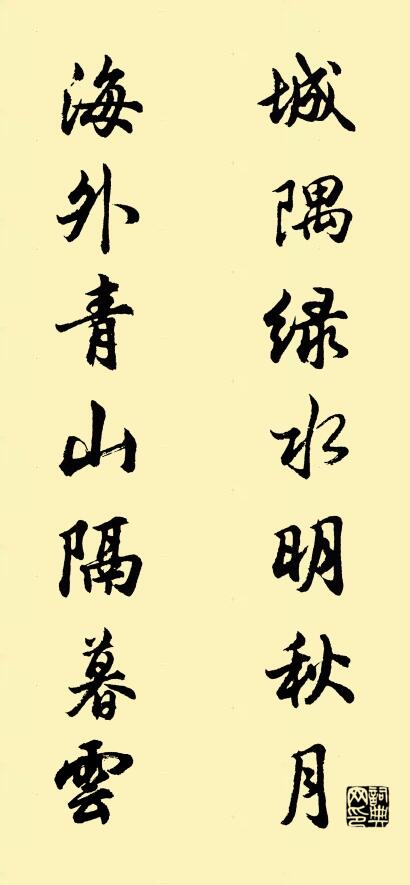 城隅緑水明秋月
海外青山隔暮雲
詞典网印